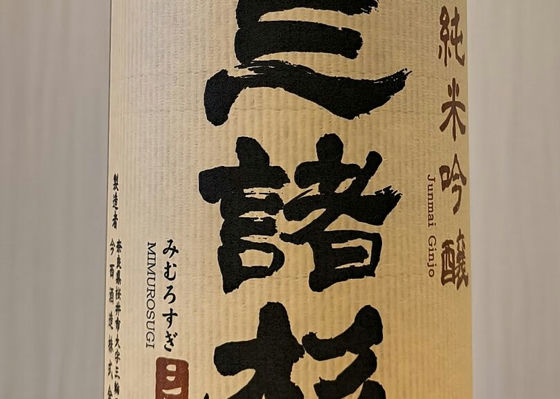 純米吟醸
Junmai Ginjo
三諸杉
みむろすぎ
MIMUROSUGI
製造者
奈良県桜井市大字三輪
今西酒造株式会